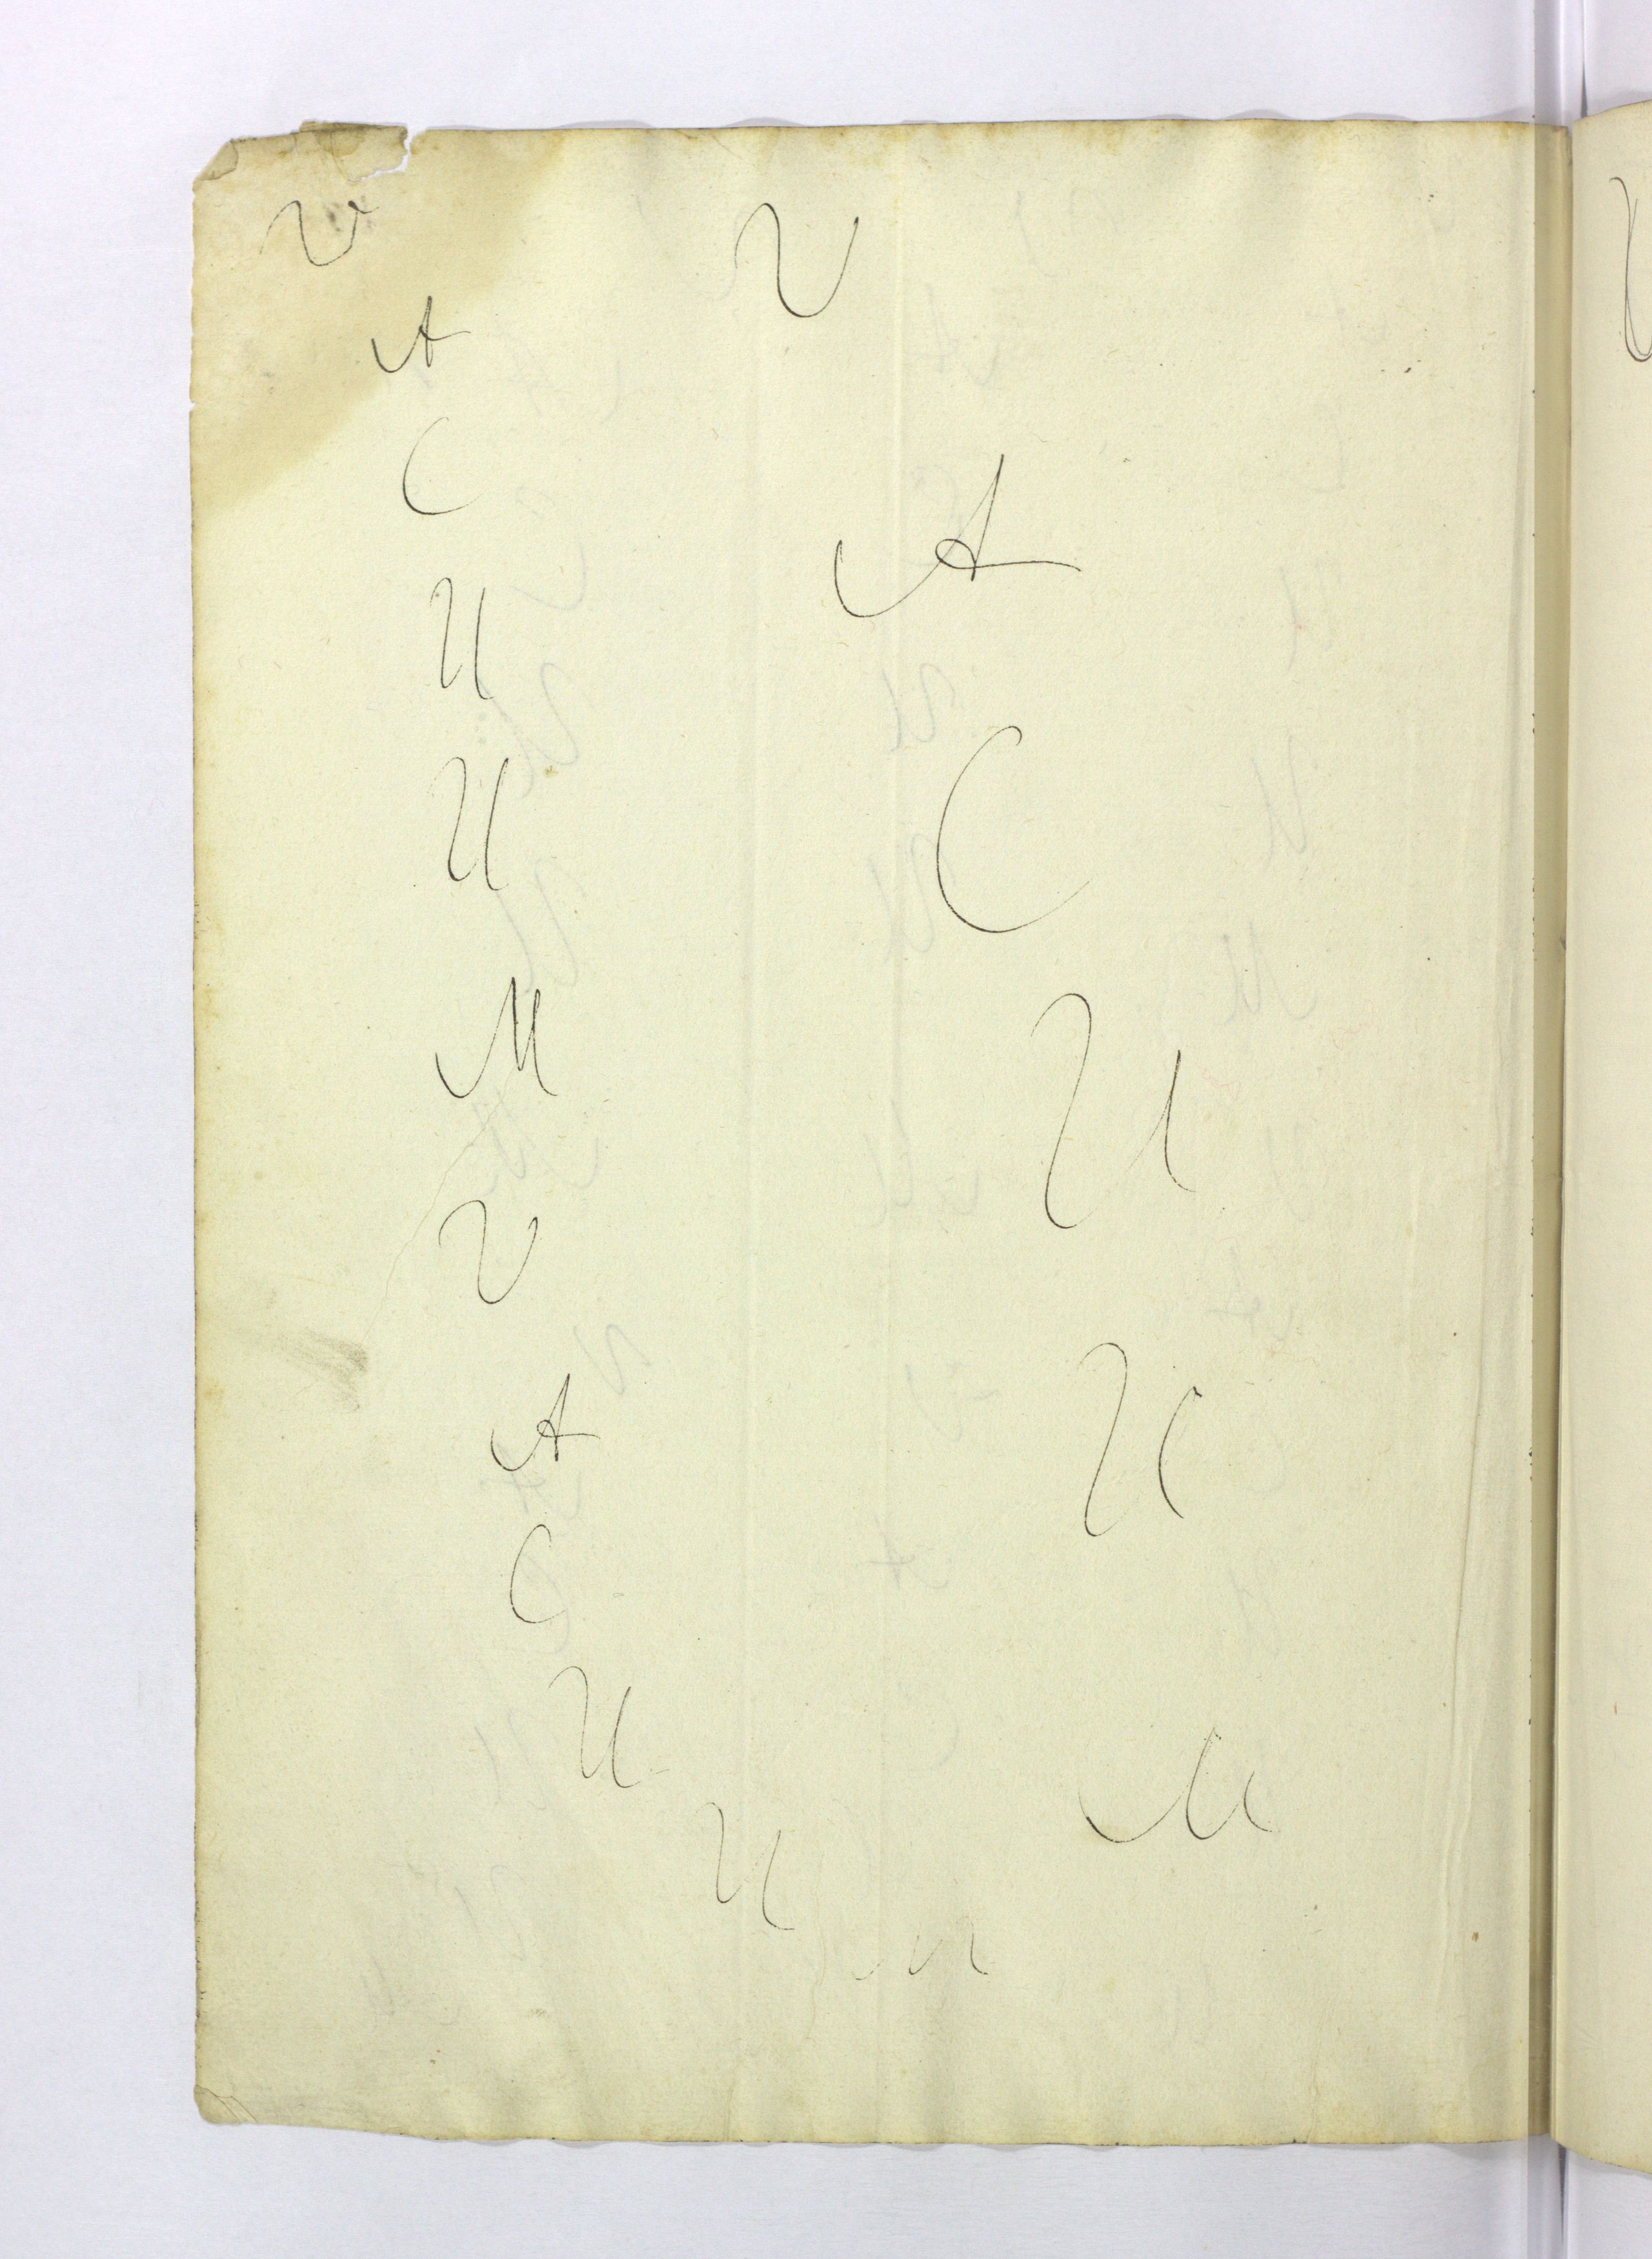 V
A
C
U
U
M
V
A
C
U
U
M
V
A
C
U
U
M